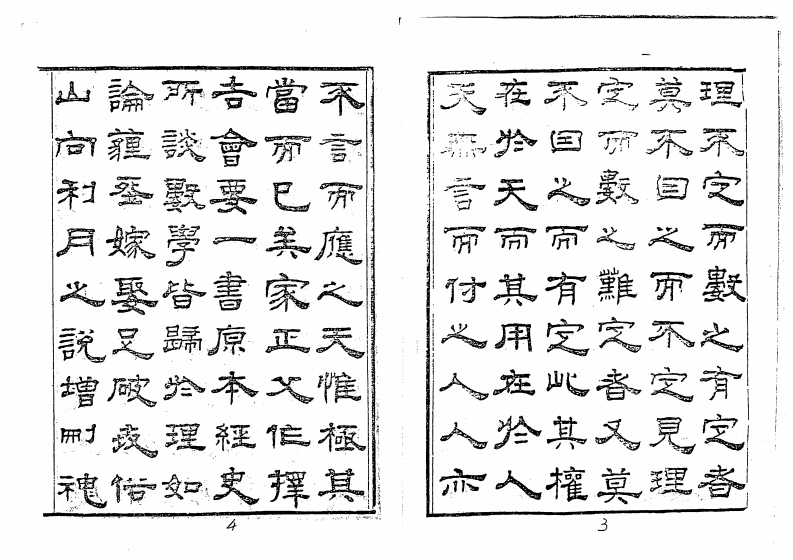 理不定而數之有定者
莫不因之而不定見理
定而數之難定者又莫
不因之而有定此其權
在於天而其用在於人
天無言而付之人人亦
3
不言而應之天惟極其
當而已矣家正父作擇
吉會要一書原本經史
所談數學皆歸於理如
論葬嫁娶足破衰俗
山向利月之說增刪
4